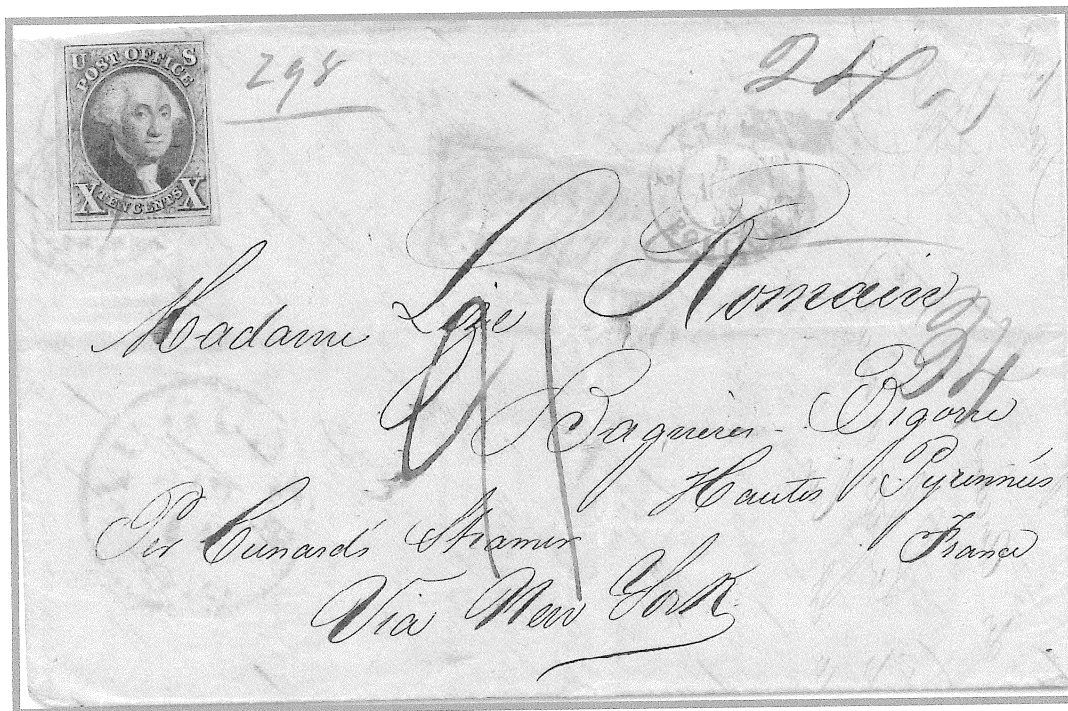 U S
POST OFFICE
X TEN CENTS X
298
24
Madame Romain
34
Bagnères Bigorre
Hautes Pyrennées
France
Per Cunard's Steamer
Via New York